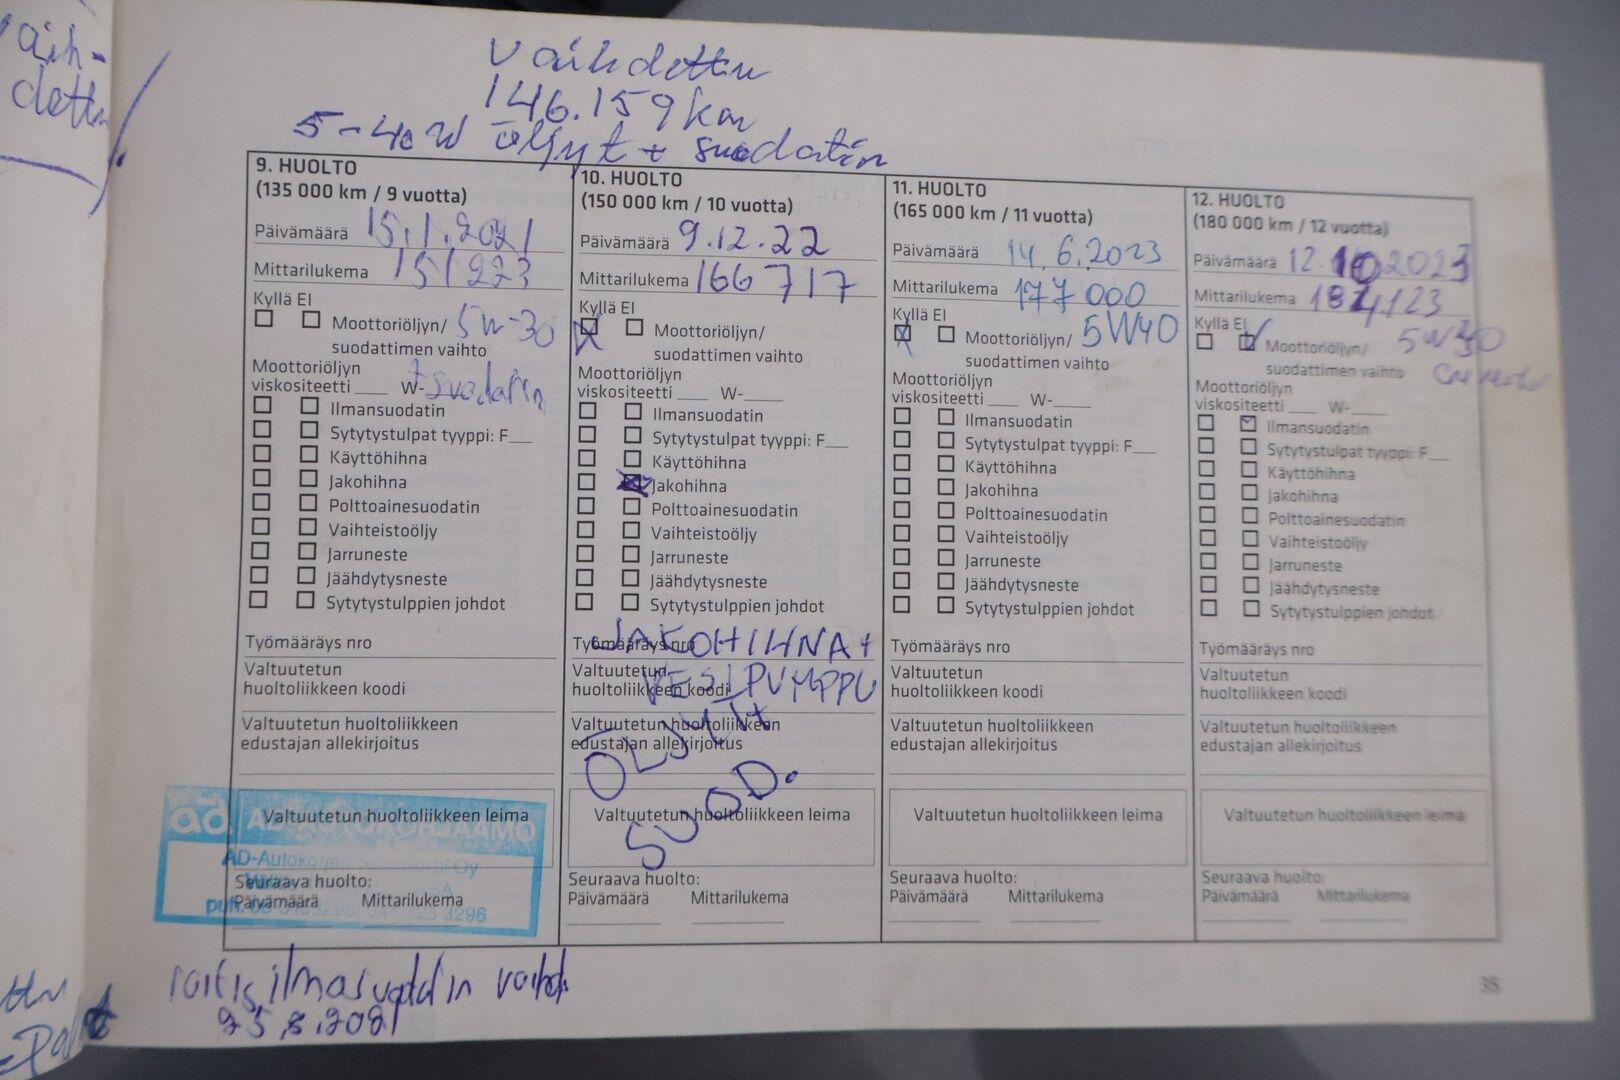 Vaihdettu
146.159 km
5-40W öljyt + suodatin
väih-
dettu
9. HUOLTO
(135 000 km / 9 vuotta)
Päivämäärä 15.1.2021
Mittarilukema 151223
Kyllä EI
Moottoriöljyn/ 5W-30
suodattimen vaihto
Moottoriöljyn
viskositeetti ___ W- + suodatin
Ilmansuodatin
Sytytystulpat tyyppi: F___
Käyttöhihna
Jakohihna
Polttoainesuodatin
Vaihteistoöljy
Jarruneste
Jäähdytysneste
Sytytystulppien johdot
Työmääräys nro
Valtuutetun
huoltoliikkeen koodi
Valtuutetun huoltoliikkeen
edustajan allekirjoitus
Valtuutetun huoltoliikkeen leima
ad AD-AUTOKORJAAMO
Seuraava huolto:
Päivämäärä Mittarilukema
10. HUOLTO
(150 000 km / 10 vuotta)
Päivämäärä 9.12.22
Mittarilukema 166 717
Kyllä EI
Moottoriöljyn/
suodattimen vaihto
Moottoriöljyn
viskositeetti ___ W-____
Ilmansuodatin
Sytytystulpat tyyppi: F___
Käyttöhihna
Jakohihna
Polttoainesuodatin
Vaihteistoöljy
Jarruneste
Jäähdytysneste
Sytytystulppien johdot
Työmääräys nro JAKOHIHNA +
Valtuutetun
huoltoliikkeen koodi VESIPUMPPU
Valtuutetun huoltoliikkeen
edustajan allekirjoitus
SUOD.
Valtuutetun huoltoliikkeen leima
Seuraava huolto:
Päivämäärä Mittarilukema
11. HUOLTO
(165 000 km / 11 vuotta)
Päivämäärä 14.6.2023
Mittarilukema 177 000
Kyllä EI
Moottoriöljyn/ 5W40
suodattimen vaihto
Moottoriöljyn
viskositeetti ___ W-____
Ilmansuodatin
Sytytystulpat tyyppi: F___
Käyttöhihna
Jakohihna
Polttoainesuodatin
Vaihteistoöljy
Jarruneste
Jäähdytysneste
Sytytystulppien johdot
Työmääräys nro
Valtuutetun
huoltoliikkeen koodi
Valtuutetun huoltoliikkeen
edustajan allekirjoitus
Valtuutetun huoltoliikkeen leima
Seuraava huolto:
Päivämäärä Mittarilukema
12. HUOLTO
(180 000 km / 12 vuotta)
Päivämäärä 12.10.2023
Mittarilukema 184123
Kyllä EI
Moottoriöljyn/
suodattimen vaihto
Moottoriöljyn
viskositeetti ___ W-____
Ilmansuodatin
Sytytystulpat tyyppi: F___
Käyttöhihna
Jakohihna
Polttoainesuodatin
Vaihteistoöljy
Jarruneste
Jäähdytysneste
Sytytystulppien johdot
Työmääräys nro
Valtuutetun
huoltoliikkeen koodi
Valtuutetun huoltoliikkeen
edustajan allekirjoitus
Valtuutetun huoltoliikkeen leima
Seuraava huolto:
Päivämäärä Mittarilukema
35